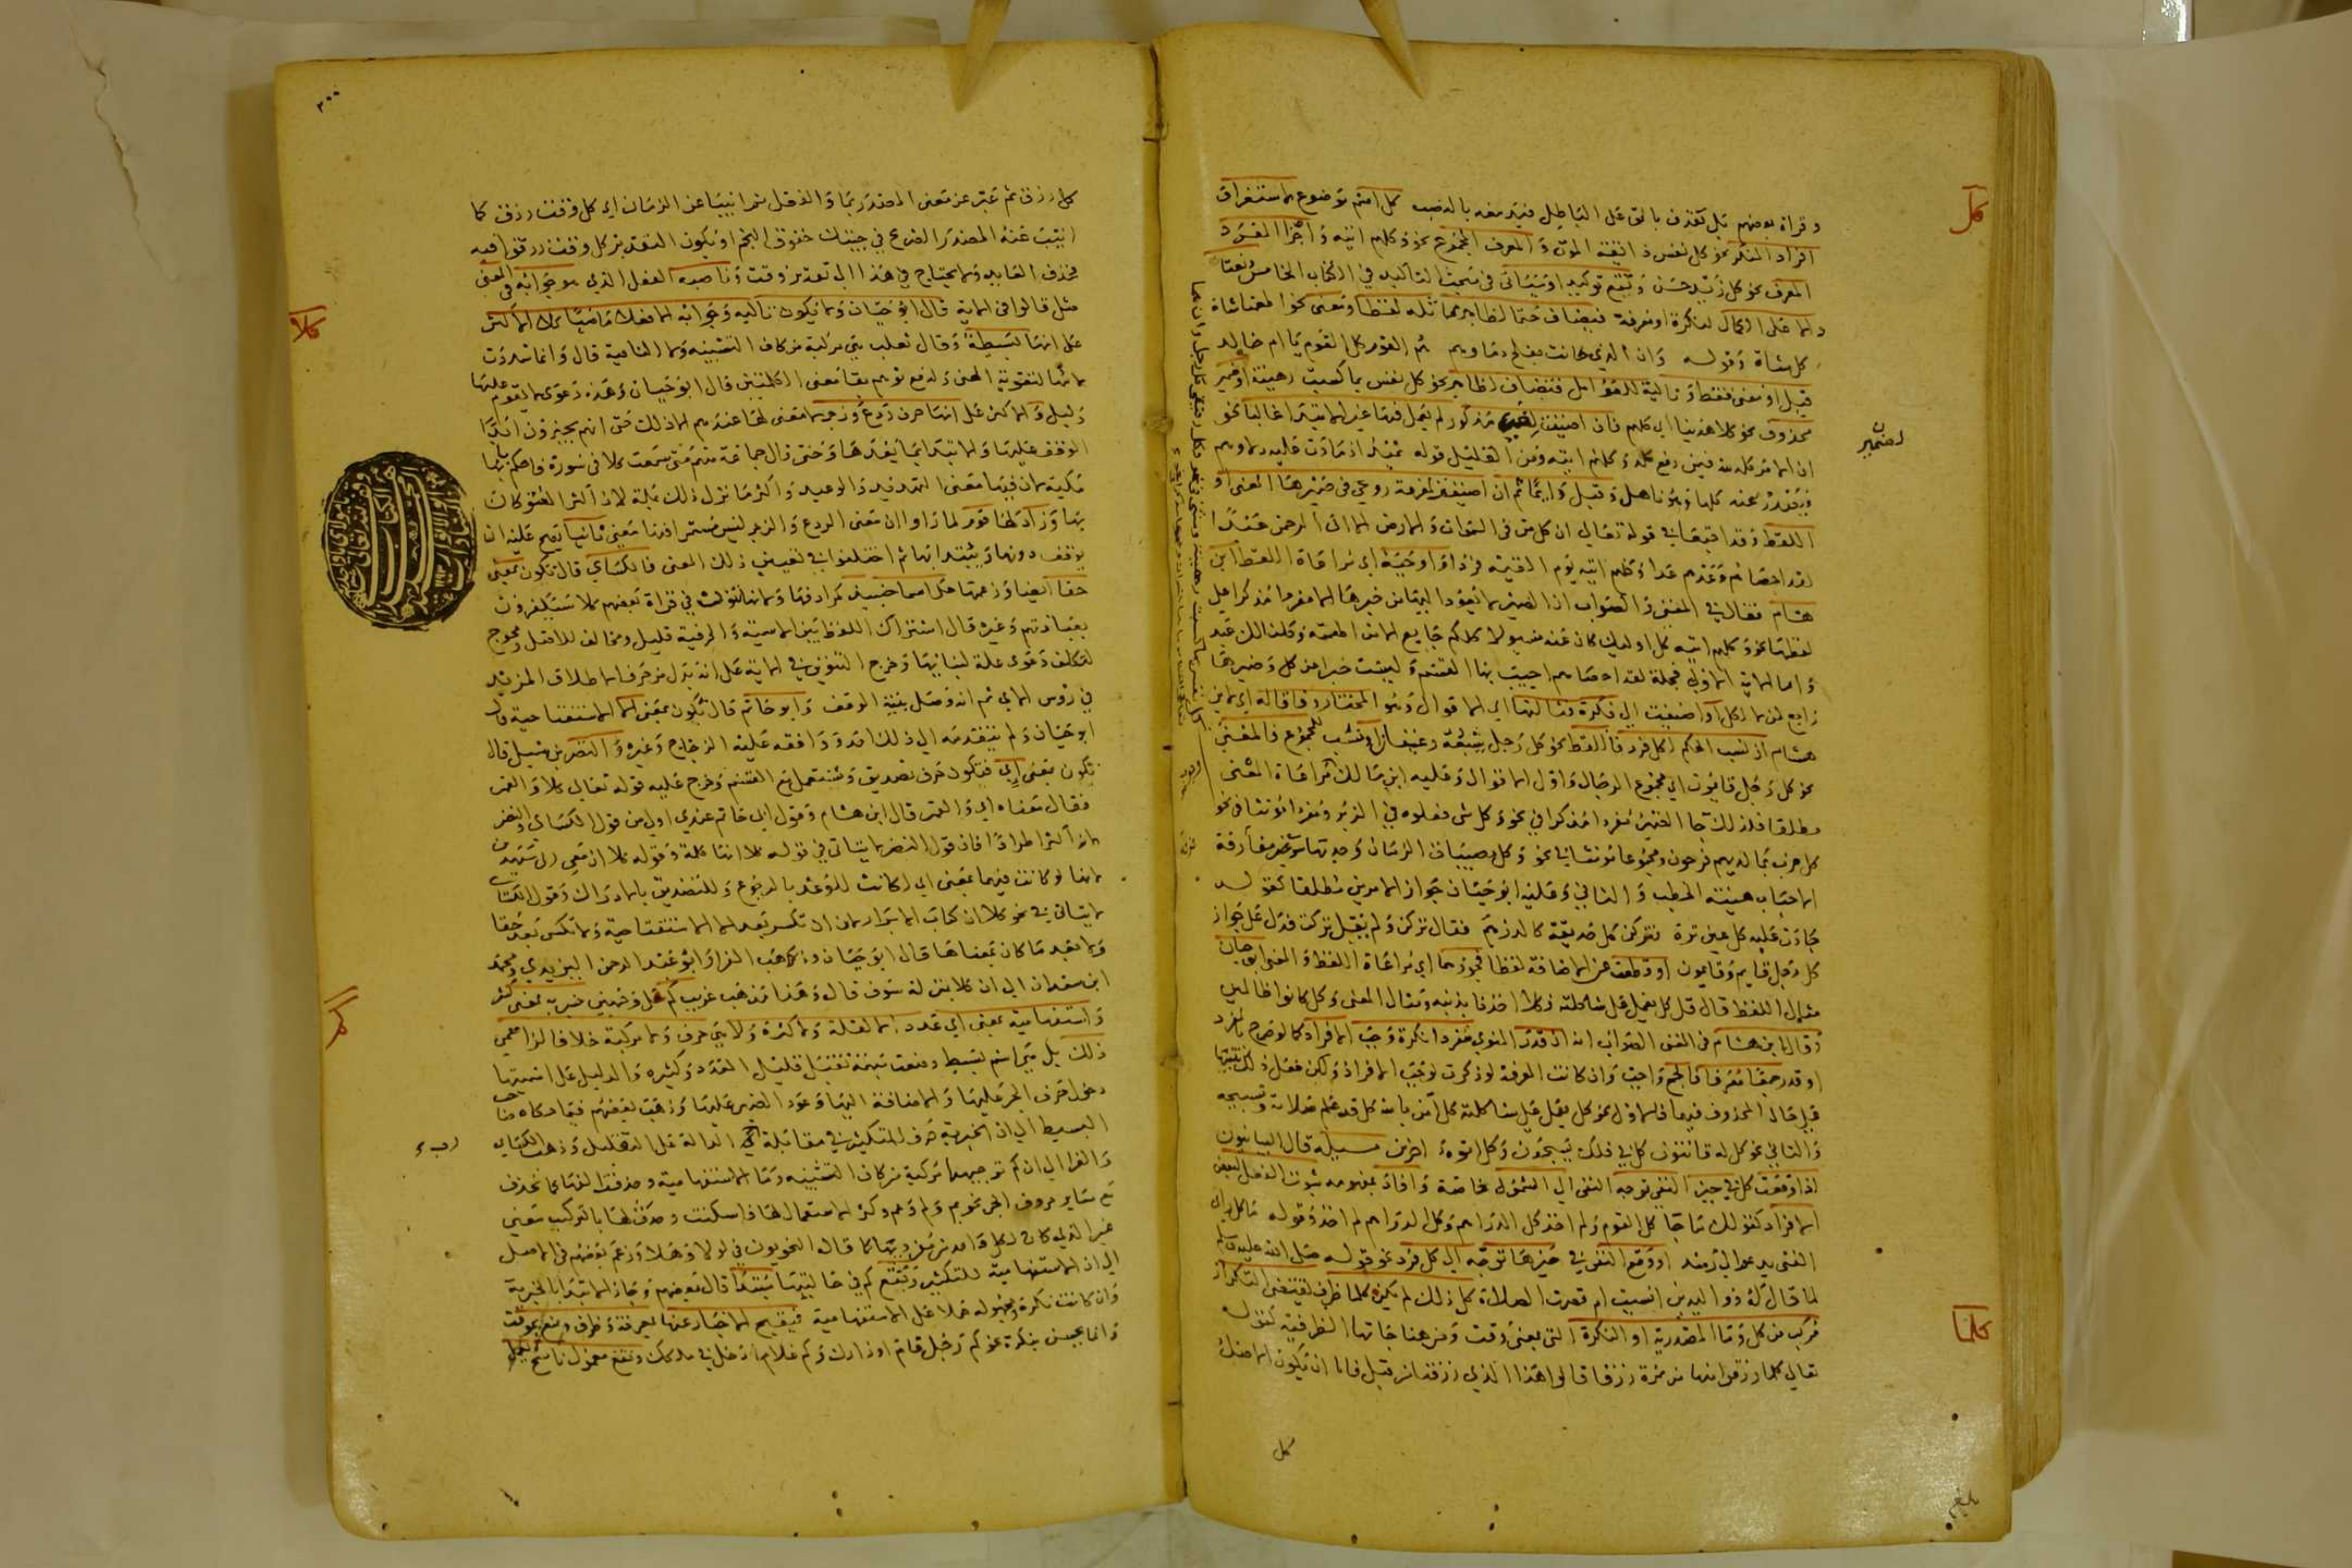 وقراة بعضهم بل نقذف بالحق على الباطل فيدمغه بالنصب كل اسم موضوع لاستغراق
افراد المنكر نحو كل نفس ذائقة الموت والمعرف المجموع نحو وكلهم اتيه واجزا المفرد
المعرف نحو كل زيد حسن وتقع توكيدا وسياتى فى مبحث التاكيد في الكتاب الخامس ونعتا
دالا على الكمال لنكرة او معرفة فيضاف حتما لظاهر مماثله لفظا ومعنى نحو اطعمنا شاة
كل شاة وقوله وان الذي حانت بفلج دماوهم هم القوم كل القوم يا ام خالد
قيل او معنى فقط وتالية للعوامل فتضاف لظاهر نحو كل نفس بما كسبت رهينة او ضمير
محذوف نحو كلا هدينا اي كلهم فان اضيفت لضمير مذكور لم يعمل فيها غير الابتدا غالبا نحو
ان الامر كله لله فيمن رفع كله وكلهم اتيه ومن القليل قوله يميد اذا مادت عليه دلاوهم
فيصدر عنه كلها وهو ناهل وقيل دايما ثم ان اضيفت لمعرفة روعي في ضميرها المعنى او
اللفظ وقد اجتمعا في قوله تعالى ان كل من فى السموات والارض الا اتى الرحمن عبدا
لقد احصاهم وعدهم عدا وكلهم اتيه يوم القيمة فردا او حتما اي مراعاة اللفظ ابن
هشام فقال في المغنى والصواب ان الضمير لا يعود اليها من خبرها الا مفردا مذكرا على
لفظها نحو وكلهم اتيه كل اوليك كان عنه مسئولا كلكم جايع الا من اطعمته وكلنا لك عبد
واما الاية الاولى فجملة لقد احصاهم اجيب بها القسم وليست خبرا عن كل وضميرها
راجع لمن لا لكل او اضيفت الى نكرة فثالثها اي الاقوال وهو المختار وفاقا له اي لابن
هشام ان نسب الحكم لكل فرد فاللفظ نحو كل رجل يشبعه رغيفان او نسب للمجموع فالمعنى
نحو كل رجل قايمون اي مجموع الرجال واول الاقوال وعليه ابن مالك مراعاة المعنى
مطلقا فلذلك جا الضمير مفردا مذكرا في نحو وكل شى فعلوه في الزبر ومفردا مؤنثا فى نحو
كل حزب بما لديهم فرحون ومجموعا مؤنثا في نحو وكل مصيبات الزمان وجدتها سوى فرقة
الاحباب هينة الخطب والثاني وعليه ابو حيان جواز الامرين مطلقا كقوله
جادت عليه كل عين ثرة فتركن كل حديقة كالدرهم فقال تركن ولم يقل تركت فدل على جواز
كل رجل قايم وقايمون او قطعت عن الاضافة لفظا فجوزهما اي مراعاة اللفظ والمعنى ابو حيان
مثال اللفظ قال قل كل يعمل على شاكلته فكلا اخذنا بذنبه ومثال المعنى وكل كانوا ظالمين
وقال ابن هشام فى المغنى الصواب انه ان قدر المنوي مفردا نكرة وجب الافراد كما لو صرح بالمفرد
او قدر جمعا معرفا فالجمع واجب وان كانت المعرفة لو ذكرت لوجب الافراد ولكن فعل ذلك تنبيها
على حال المحذوف فيهما فالاول نحو كل يعمل على شاكلته كل آمن بالله كل قد علم صلاته وتسبيحه
والثاني نحو كل له قانتون كل في فلك يسبحون وكل اتوه داخرين مسيلة قال البيانيون
اذا وقعت كل في حيز النفى توجه النفى الى الشمول خاصة وافاد بمفهومه ثبوت الفعل لبعض
الافراد كقولك ما جا كل القوم ولم اخذ كل الدراهم وكل الدراهم لم اخذ وقوله ما كل راى
الفتى يدعوا الى رشد او وقع النفى في حيزها توجه الى كل فرد نحو قوله صلى الله عليه وسلم
لما قال له ذو اليدين انسيت ام قصرت الصلاة كل ذلك لم يكن كلما ظرف يقتضى التكرار
مركب من كل وما المصدرية او النكرة التى بمعنى وقت ومن هنا جاتها الظرفية كقوله
تعالى كلما رزقوا منها من ثمرة رزقا قالوا هذا الذي رزقنا من قبل فاما ان يكون الاصل
كل
كل
لضمير
كلما
بلغ
٣٠٠
كل رزق ثم عبر عن معنى المصدر بما والفعل ثم انيبا عن الزمان اي كل وقت رزق كما
انيب عنه المصدر الصريح في جيتك خفوق النجم او يكون التقدير كل وقت رزقوا فيه
فحذف العايد ولا يحتاج في هذا الى تقدير وقت وناصبه الفعل الذي هو جوابه فى المعنى
مثل قالوا في الاية قال ابو حيان ولا يكون تاليه وجوابه الا فعلا ماضيا كلا الاكثر
على انها بسيطة وقال ثعلب هى مركبة من كاف التشبيه ولا النافية قال وانما شددت
لامها لتقوية المعنى ولدفع توهم بقا معنى الكلمتين قال ابو حيان وهذه دعوى لا يقوم عليها
دليل والاكثر على انها حرف ردع وزجر لا معنى لها عندهم الا ذلك حتى انهم يجيزون ابدا
الوقف عليها والابتدا بما بعدها وحتى قال جماعة منهم متى سمعت كلا في سورة فاحكم بانها
مكية لان فيها معنى التهديد والوعيد واكثر ما نزل ذلك بمكة لان اكثر العتو كان
بها وزاد لها قوم لما راوا ان معنى الردع والزجر ليس مستمرا فيها معنى ثانيا يصح عليه ان
يوقف دونها ويبتدا بها ثم اختلفوا في تعيين ذلك المعنى فالكساي قال تكون بمعنى
حقا ايضا وزعمها مكي اسما حينيذ كمرادفها ولانها تنون في قراة بعضهم كلا سيكفرون
بعبادتهم وغيره قال اشتراك اللفظ بين الاسمية والحرفية قليل ومخالف للاصل ومحوج
لتكلف دعوى علة لبنايها وخرج التنوين في الاية على انه بدل من حرف الاطلاق المزيد
في رؤس الاي ثم انه وصل بنية الوقف وابو حاتم قال تكون بمعنى الا الاستفتاحية قال
ابو حيان ولم يتقدمه الى ذلك احد ووافقه عليه الزجاج وغيره والنضر بن شميل قال
تكون بمعنى اي فتكون حرف تصديق وتستعمل مع القسم وخرج عليه قوله تعالى كلا والقمر
فقال معناه اي والقمر قال ابن هشام وقول ابى حاتم عندي اولى من قول الكساي والنضر
لانه اكثر اطرادا فان قول النضر لا يتاتى في قوله كلا انها كلمة وقوله كلا ان معي ربي سيهدين
لانها لو كانت فيهما بمعنى اي لكانت للوعد بالرجوع وللتصديق بالادراك وقول الكساي
لا يتاتى في نحو كلا ان كتاب الابرار لان ان تكسر بعد الا الاستفتاحية ولا تكسر بعد حقا
ولا بعد ما كان بمعناها قال ابو حيان وذهب الفرا وابو عبد الرحمن اليزيدي ومحمد
ابن سعدان الى ان كلا بمنزلة سوف قال وهذا مذهب غريب كم على وجهين خبرية بمعنى كثير
واستفهامية بمعنى اي عدد لا لقلة ولا كثرة ولا هي حرف ولا مركبة خلافا لزاعمى
ذلك بل هى اسم بسيط وضعت مبهمة تقبل قليل العدد وكثيره والدليل على اسميتها
دخول حرف الجر عليها والاضافة اليها وعود الضمير عليها وذهب بعضهم فيما حكاه صاحب
البسيط الى ان الخبرية حرف للتكثير في مقابلة رب الدالة على التقليل وذهب الكساي
والفرا الى ان كم بوجهيها مركبة من كاف التشبيه وما الاستفهامية وحذفت الفها كما تحذف
مع ساير حروف الجر نحو بم ولم وعم وكثر الاستعمال لها فاسكنت وحدث لها بالتركيب معنى
غير الذي كان لكل واحد من مفرديها كما قاله النحويون في لولا وهلا وزعم بعضهم فى الاصل
الى ان الاستفهامية للتكثير وتقع كم في حالتيها مبتدا قال بعضهم وجاز الابتدا بالخبرية
وان كانت نكرة مجهولة حملا على الاستفهامية فيقبح الاخبار عنها بمعرفة وظرف
وانما يحسن بنكرة نحو كم رجل قام او زارك وكم غلام دخل في ملكك وتقع معمول ناسخ
كلا
كم
رب